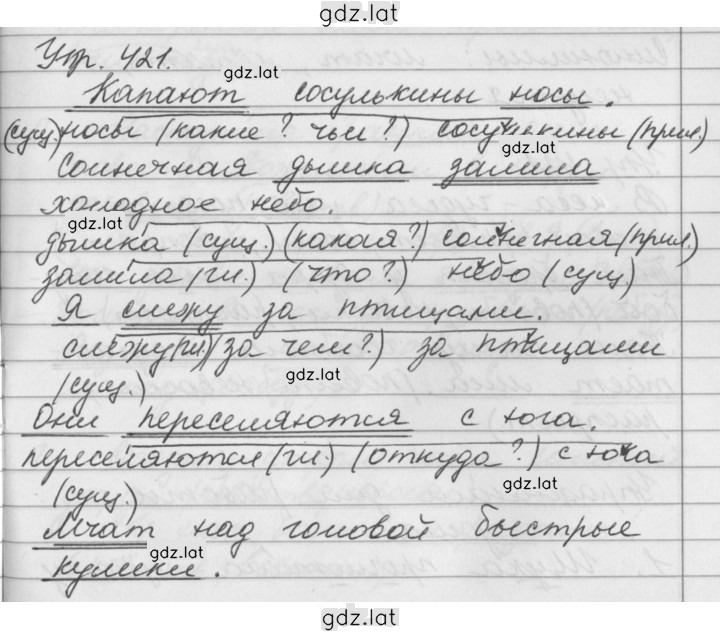 gdz.lat
Упр. 421.
gdz.lat
Капают сосулькины носы.
(сущ.) носы (какие? чьи?) сосулькины (прил.)
gdz.lat
Солнечная дымка залила
холодное небо.
gdz.lat
дымка (сущ.) (какая?) солнечная (прил.)
залила (гл.) (что?) небо (сущ.)
Я слежу за птицами.
слежу (гл.) (за чем?) за птицами
gdz.lat
(сущ.)
Они переселяются с юга.
переселяются (гл.) (откуда?) с юга
gdz.lat
(сущ.)
Мчат над головой быстрые
gdz.lat
кулики.
gdz.lat